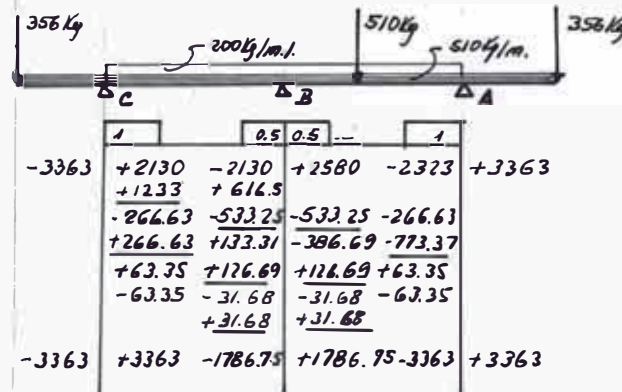 356 Kg 510 Kg 356 Kg
200 Kg/m.l. 510 Kg/m.
C B A
1 0.5 0.5 -- 1
-3363 +2130 -2130 +2580 -2323 +3363
+1233 +616.5
-266.63 -533.25 -533.25 -266.63
+266.63 +133.31 -386.69 -773.37
+63.35 +126.69 +126.69 +63.35
-63.35 -31.68 -31.68 -63.35
+31.68 +31.68
-3363 +3363 -1786.75 +1786.75 -3363 +3363